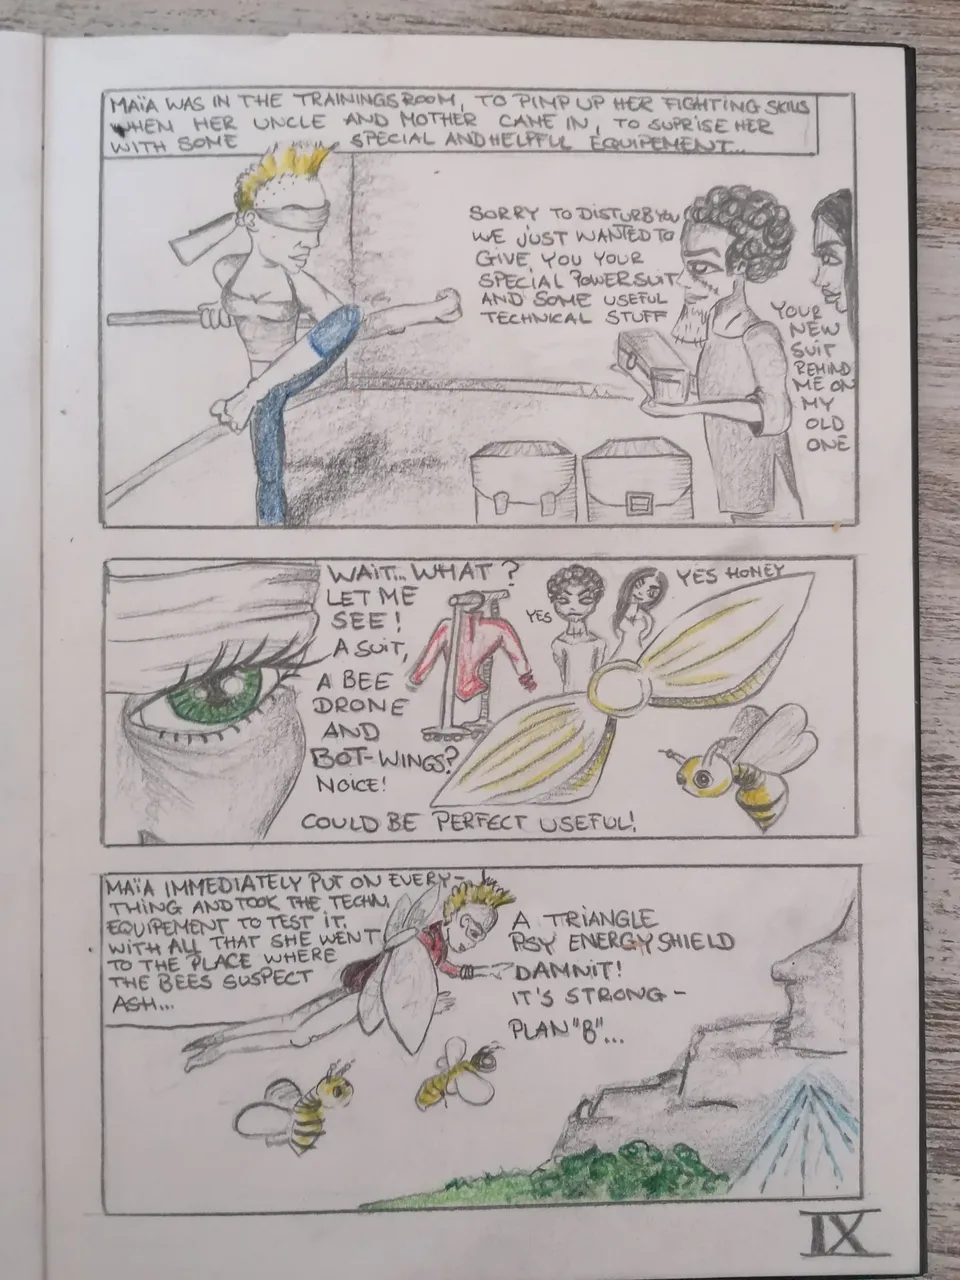 MAÏA WAS IN THE TRAININGSROOM, TO PIMP UP HER FIGHTING SKILLS
WHEN HER UNCLE AND MOTHER CAME IN, TO SUPRISE HER
WITH SOME SPECIAL AND HELPFUL EQUIPEMENT...
SORRY TO DISTURB YOU
WE JUST WANTED TO
GIVE YOU YOUR
SPECIAL POWERSUIT
AND SOME USEFUL
TECHNICAL STUFF
YOUR
NEW
SUIT
REMIND
ME ON
MY
OLD
ONE
WAIT... WHAT?
LET ME
SEE!
A SUIT,
A BEE
DRONE
AND
BOT-WINGS?
NOICE!
COULD BE PERFECT USEFUL!
YES
YES HONEY
MAÏA IMMEDIATELY PUT ON EVERY-
THING AND TOOK THE TECHN.
EQUIPEMENT TO TEST IT.
WITH ALL THAT SHE WENT
TO THE PLACE WHERE
THE BEES SUSPECT
ASH...
A TRIANGLE
PSY ENERGY SHIELD
DAMNIT!
IT'S STRONG-
PLAN "B"...
IX